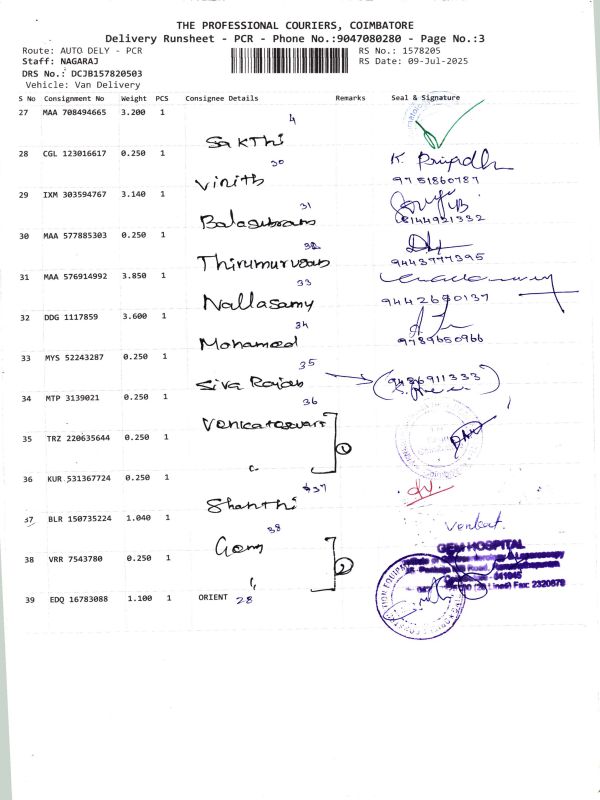 THE PROFESSIONAL COURIERS, COIMBATORE
Delivery Runsheet - PCR - Phone No.:9047080280 - Page No.:3
Route: AUTO DELY - PCR
RS No.: 1578205
Staff: NAGARAJ
RS Date: 09-Jul-2025
DRS No.: DCJB157820503
Vehicle: Van Delivery
S No Consignment No Weight PCS Consignee Details Remarks Seal & Signature
27 MAA 708494665 3.200 1
4
Sakthi
28 CGL 123016617 0.250 1
30
K. Priyadh
Vinith
9751860787
29 IXM 303594767 3.140 1
31
Balasubram
30 MAA 577885303 0.250 1
32
9443777395
31 MAA 576914992 3.850 1
33
Nallasamy
9442690137
32 DDG 1117859 3.600 1
34
Mohamed
9789650966
33 MYS 52243287 0.250 1
35
34 MTP 3139021 0.250 1
36
35 TRZ 220635644 0.250 1
1
36 KUR 531367724 0.250 1
37
Shanthi
37 BLR 150735224 1.040 1
Venkat.
38
GEM HOSPITAL
38 VRR 7543780 0.250 1
2
39 EDQ 16783088 1.100 1 ORIENT 28
Fax: 2320879